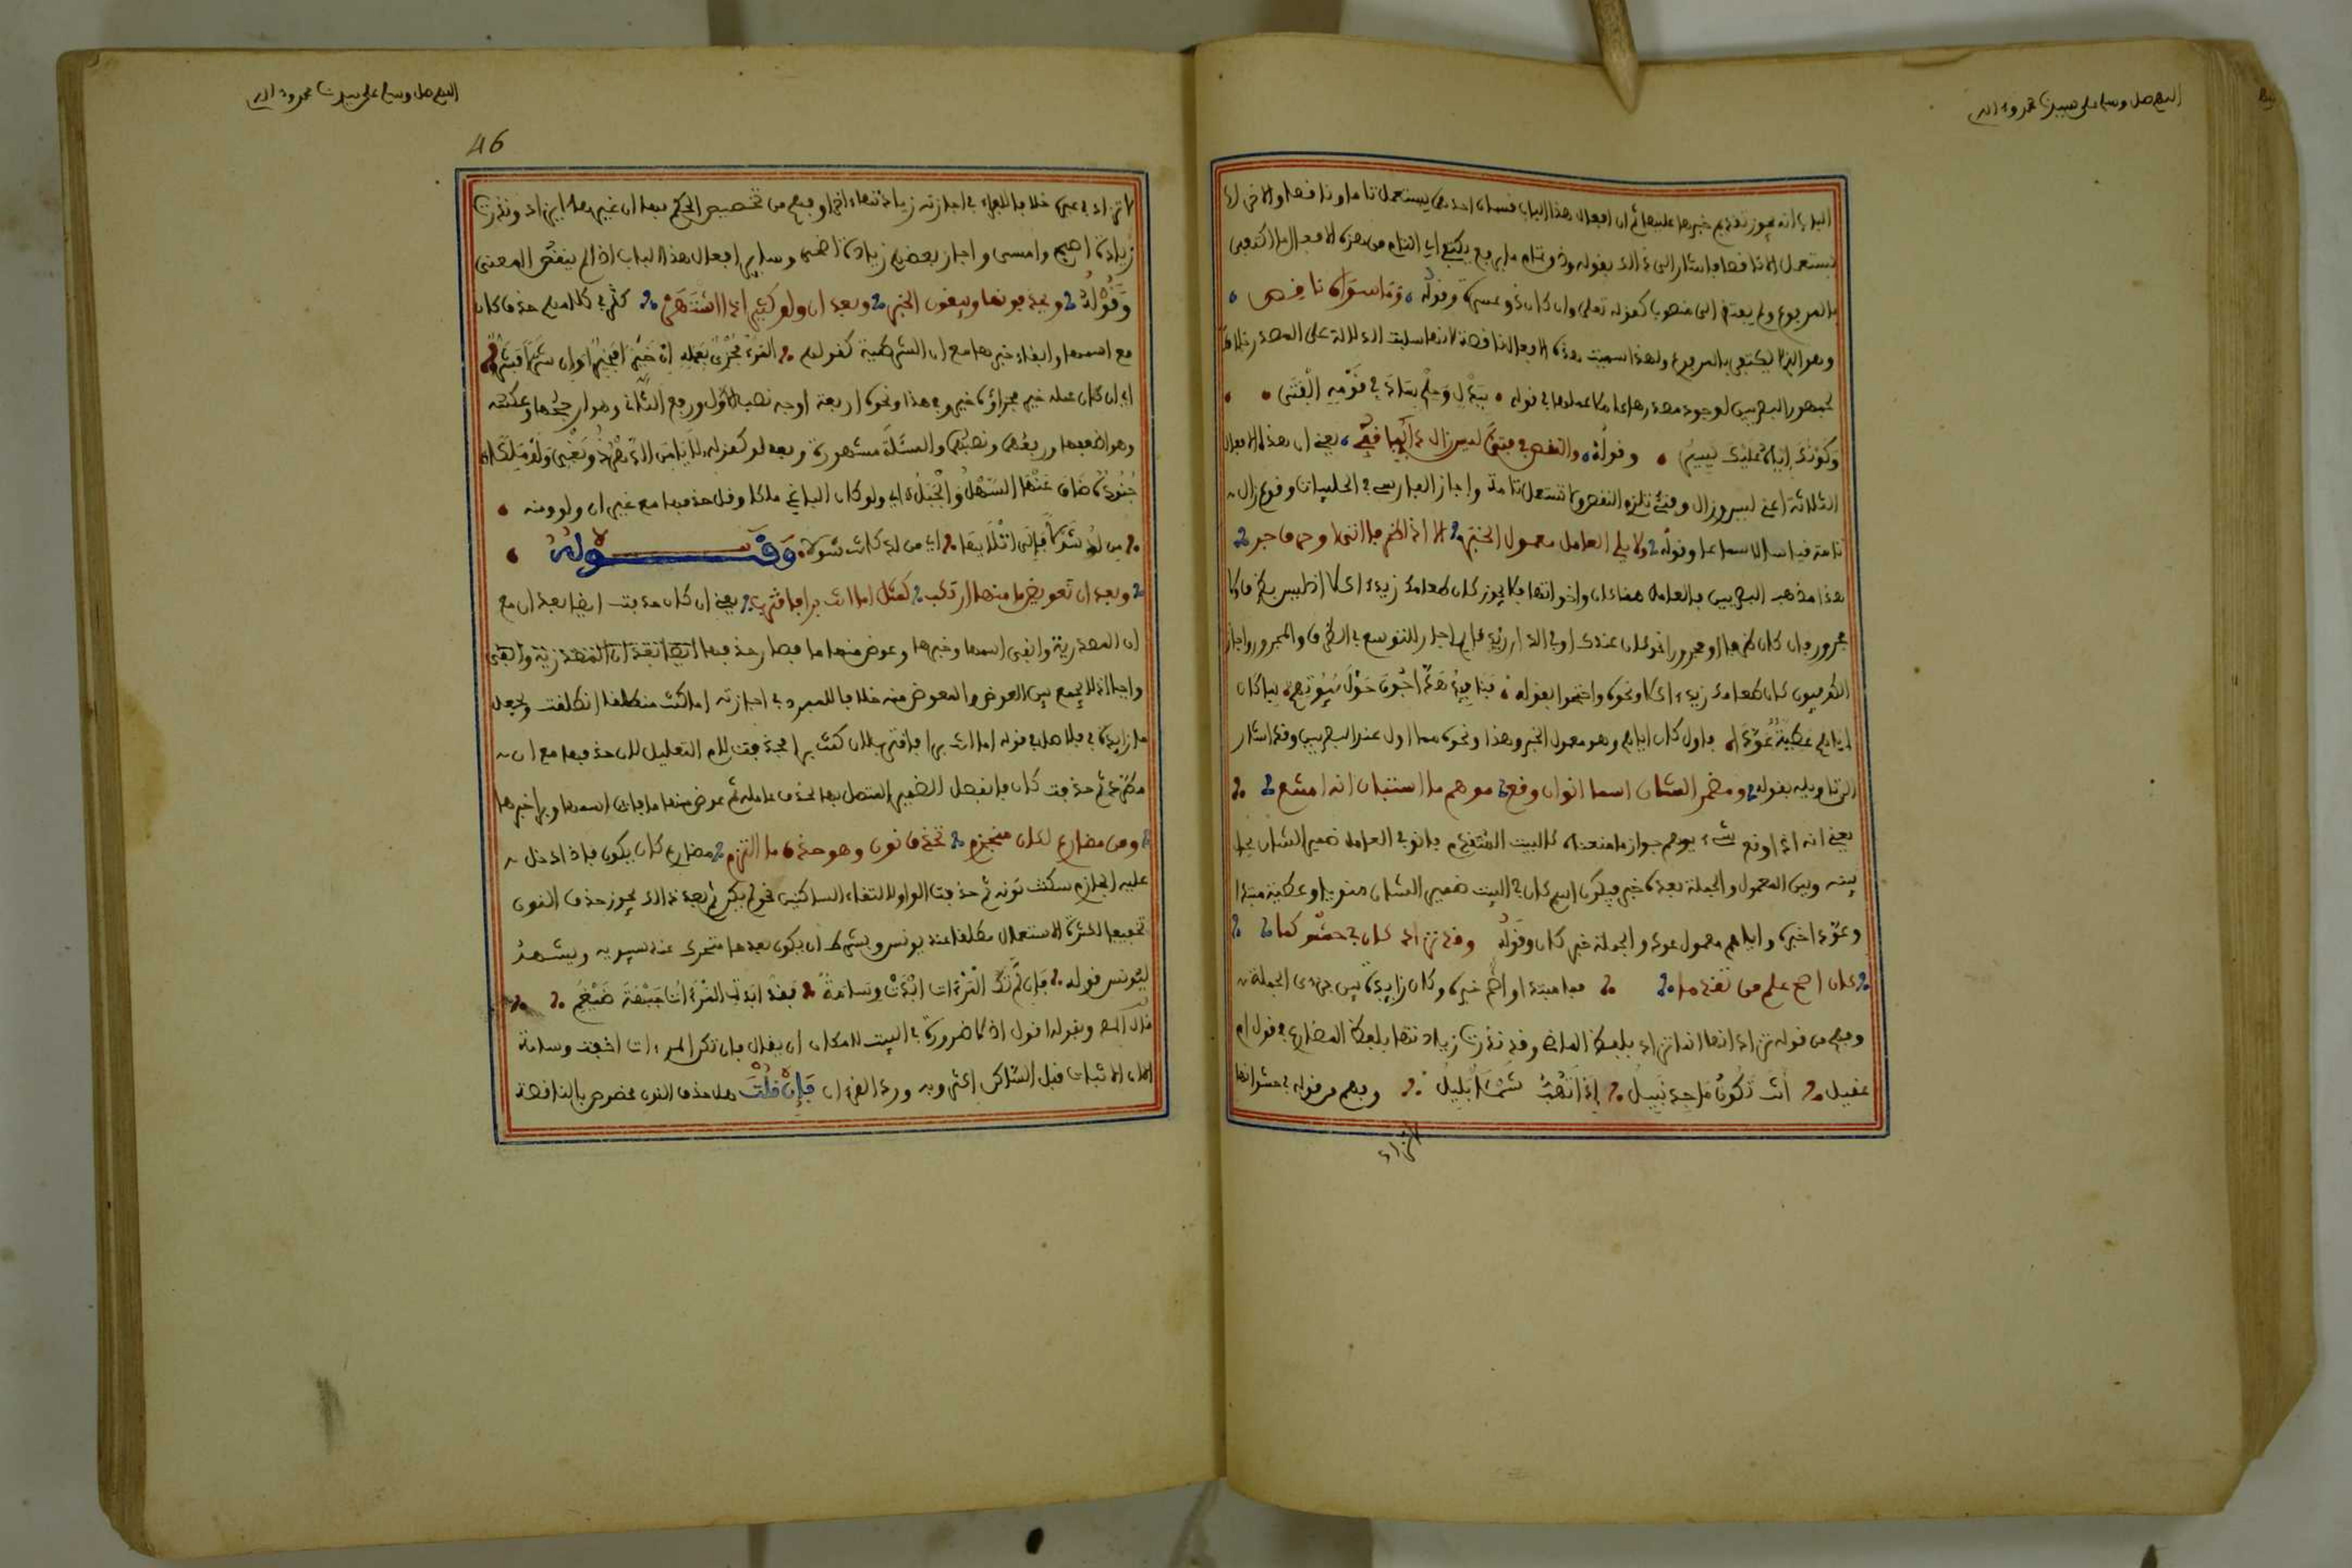 اللهم صل وسلم على سيدنا محمد وءاله
الباب انه يجوز تقديم خبرها عليها ثم ان افعال هذا الباب قسمان احدهما يستعمل تاما وناقصا والاخر لا
يستعمل الا ناقصا واشار الى ذالك بقوله وذو تمام ما برفع يكتفي اي التام من هذه الافعال ما اكتفى
بالمرفوع ولم يفتقر الى منصوب كقوله تعلى وان كان ذو عسرة وقوله وما سواه ناقص
وهو الذي لا يكتفي بالمرفوع ولهذا سميت هذه الافعال ناقصة لانها سلبت الدلالة على المصدر خلافا
لجمهور البصريين لوجود مصدرها عاملا عملها في قوله ببذل وحلم ساد في قومه الفتى
وكونك اياه عليك يسير وقوله والنقص في فتئ ليس زال دائما قفي يعني ان هذه الافعال
الثلاثة اعني ليس وزال وفتئ تلزم النقص ولا تستعمل تامة واجاز الفارسي في الحلبيات وقوع زال
تامة قياسا لا سماعا وقوله ولا يلي العامل معمول الخبر الا اذا ظرفا اتى او حرف جر
هذا مذهب البصريين والعامل هنا كان واخواتها فلا يجوز كان طعامك زيد اكلا اذ ليس بظرف ولا
مجرور فان كان ظرفا او مجرورا نحو كان عندك او في الدار زيد جاز للتوسع في الظرف والمجرور واجاز
الكوفيون كان طعامك زيد اكلا ونحوه واحتجوا بقوله قنافذ هداجون حول بيوتهم بما كان
اياهم عطية عودا فاول كان اياهم وهو معمول الخبر وهذا ونحوه مما اول عند البصريين وقد اشار
الى تاويله بقوله ومضمر الشان اسما انو ان وقع موهم ما استبان انه امتنع
يعني انه اذا وقع شيء يوهم جواز ما منعناه كالبيت المتقدم فانو في العامل ضمير الشان يحل
بينه وبين المعمول والجملة بعده خبر فيكون اسم كان في البيت ضمير الشان منويا وعطية مبتدا
وعودا خبره واياهم معمول عود والجملة خبر كان وقوله وقد تزاد كان في حشو كما
كان اصح علم من تقدما فما مبتدا واصح خبره وكان زايدة بين جزءي الجملة
وفهم من قوله تزاد انها انما تزاد بلفظ الماضي وقد ندرت زيادتها بلفظ المضارع في قول ام
عقيل انت تكون ماجد نبيل اذا تهب شمأل بليل وفهم من قوله في حشو انها
لا تزاد
اللهم صل وسلم على سيدنا محمد وءاله
46
لا تزاد في غيره خلافا للفراء في اجازته زيادتها ءاخرا وفهم من تخصيص الحكم بها ان غيرها لا يزاد وندرت
زيادة اصبح وامسى واجاز بعضهم زيادة اضحى وساير افعال هذا الباب اذا لم ينقض المعنى
وقوله ويحذفونها ويبقون الخبر وبعد ان ولو كثيرا ذا اشتهر كثر في كلامهم حذف كان
مع اسمها وابقاء خبرها مع ان الشرطية كقولهم المرء مجزي بعمله ان خيرا فخير وان شرا فشر
اي ان كان عمله خيرا فجزاؤه خير وفي هذا ونحوه اربعة اوجه نصب الاول ورفع الثاني وهو ارجحها وعكسه
وهو اضعفها ورفعهما ونصبهما والمسئلة مشهورة وبعد لو كقوله لا يامن الدهر ذو بغي ولو ملكا
جنوده ضاق عنها السهل والجبل اي ولو كان الباغي ملكا وقل حذفها مع غير ان ولو ومنه
من لد شولا فالى اتلائها اي من لد كانت شولا وقوله
وبعد ان تعويض ما عنها ارتكب كمثل اما انت برا فاقترب يعني ان كان حذفت ايضا بعد ان مع
ان المصدرية وابقي اسمها وخبرها وعوض منها ما فصار حذفها
واجبا اذ لا يجمع بين العوض والمعوض منه خلافا للمبرد في اجازته اما كنت منطلقا انطلقت وتجعل
ما زايدة فالاصل في قوله اما انت برا فاقترب لان كنت برا فحذفت لام التعليل لان حذفها مع ان
مطرد ثم حذفت كان فانفصل الضمير المتصل بها لحذف عامله ثم عوض منها ما فانت اسمها وبرا خبرها
ومن مضارع لكان منجزم تحذف نون وهو حذف ما التزم مضارع كان يكون فاذا دخل
عليه الجازم سكنت نونه ثم حذفت الواو لالتقاء الساكنين نحو لم يكن ثم بعد ذالك يجوز حذف النون
تخفيفا لكثرة الاستعمال مطلقا عند يونس وبشرط ان يكون بعدها متحرك عند سيبويه ويشهد
ليونس قوله فان لم تك المرءات ابدت وسامة فقد ابدت المرءات جبهة ضيغم
قبل الساكن اكثر وبه ورد القرءان فان قلت هل حذف النون مخصوص بالناقصة